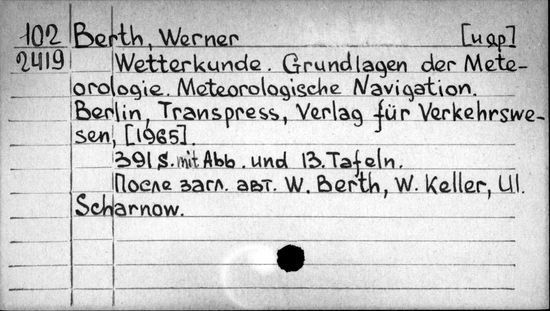 102 Berth, Werner [и др]
2419 Wetterkunde. Grundlagen der Mete-
orologie. Meteorologische Navigation.
Berlin, Transpress, Verlag für Verkehrswe-
sen, [1965].
391 S. mit Abb. und 13. Tafeln.
После загл. авт. W. Berth, W. Keller, Ul.
Scharnow.